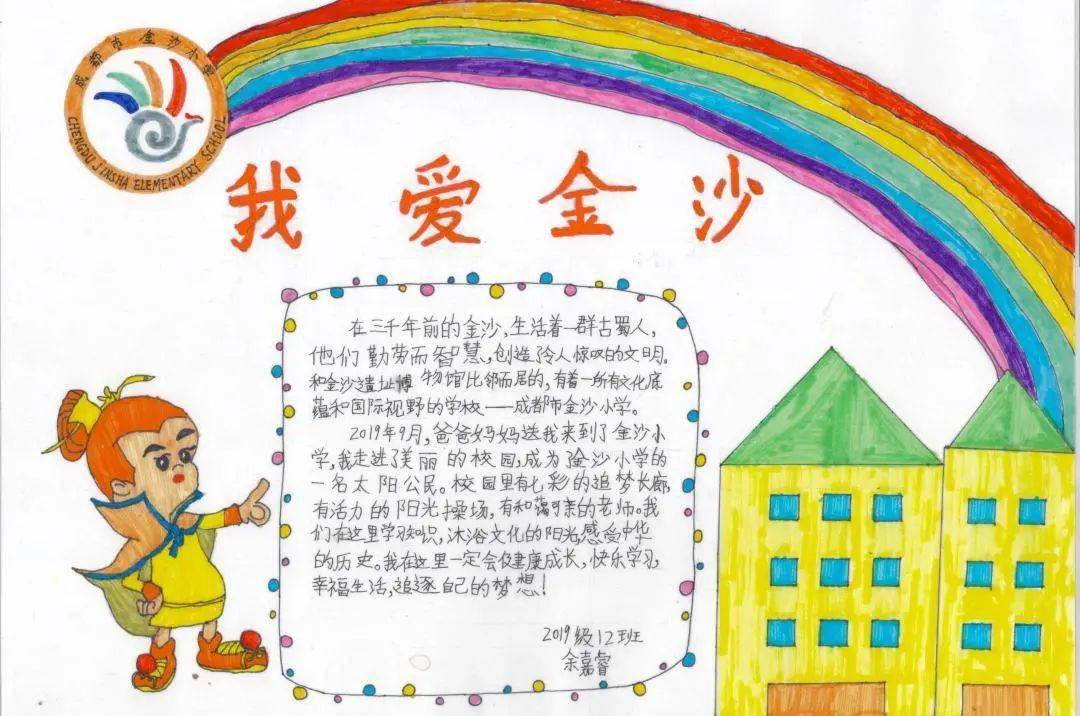 成都市金沙小学
CHENGDU JINSHA ELEMENTARY SCHOOL
我爱金沙
在三千年前的金沙,生活着一群古蜀人,
他们勤劳而智慧,创造了令人惊叹的文明。
和金沙遗址博物馆比邻而居的,有着一所有文化底
蕴和国际视野的学校——成都市金沙小学。
2019年9月,爸爸妈妈送我来到了金沙小
学,我走进了美丽的校园,成为金沙小学的
一名太阳公民。校园里有七彩的追梦长廊,
有活力的阳光操场,有和蔼可亲的老师。我
们在这里学习知识,沐浴文化的阳光,感受中华
的历史。我在这里一定会健康成长,快乐学习,
幸福生活,追逐自己的梦想!
2019级12班
余嘉睿